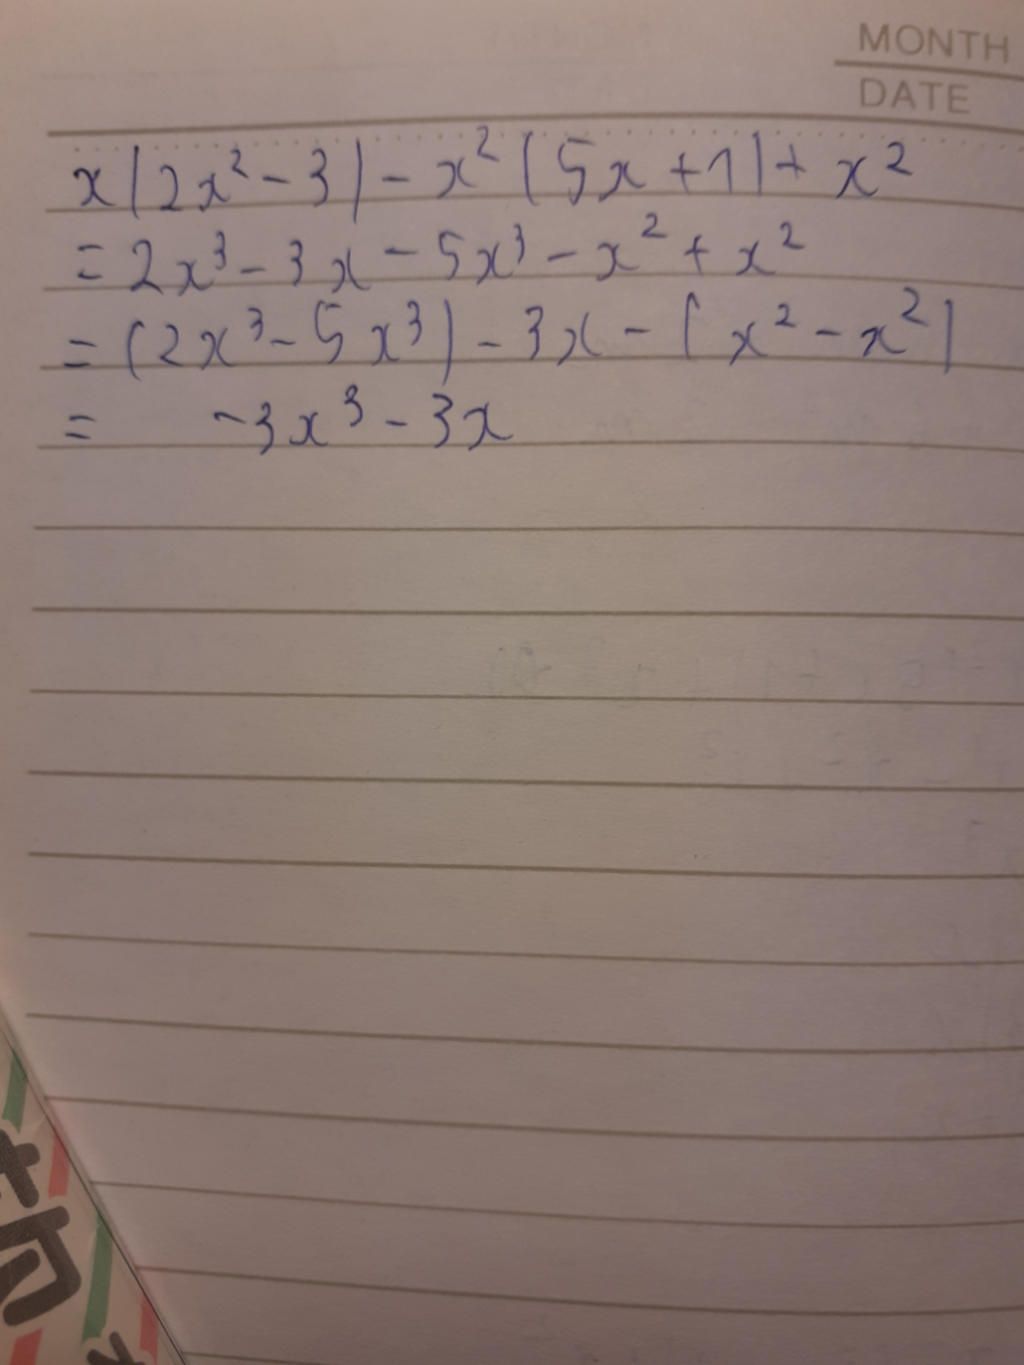 MONTH
DATE
x(2x² - 3) - x² (5x + 1) + x²
= 2x³ - 3x - 5x³ - x² + x²
= (2x³ - 5x³) - 3x - (x² - x²)
= -3x³ - 3x